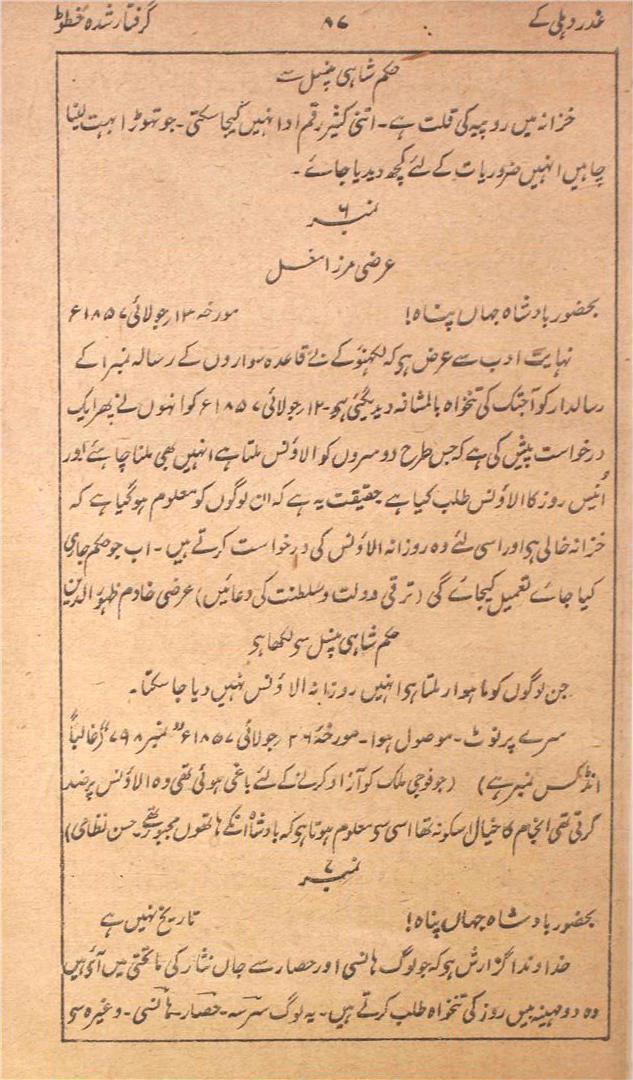 غدر دہلی کے ۸۷ گرفتار شدہ خطوط
حکم شاہی پنسل سے
خزانہ میں روپیہ کی قلت ہے۔ اتنی کثیر رقم ادا نہیں کیجا سکتی۔ جو تھوڑا بہت لینا
چاہیں انہیں ضروریات کے لئے کچھ دیدیا جائے۔
نمبر ۶
عرضی مرزا مغل
بحضور بادشاہ جہاں پناہ! مورخہ ۱۳ جولائی ۱۸۵۷ء
نہایت ادب سے عرض ہو کہ لکھنؤ کے بے قاعدہ سواروں کے رسالہ نمبر ۱ کے
رسالدار کو آجتک کی تنخواہ بالمشافہ دیدیگئی ہو۔ ۱۲ جولائی ۱۸۵۷ء کو انہوں نے پھر ایک
درخواست پیش کی ہے کہ جس طرح دوسروں کو الاؤنس ملتا ہے انہیں بھی ملنا چاہئے اور
اُنیس روز کا الاؤنس طلب کیا ہے حقیقت یہ ہے کہ ان لوگوں کو معلوم ہو گیا ہے کہ
خزانہ خالی ہو اور اسی لئے وہ روزانہ الاؤنس کی درخواست کرتے ہیں۔ اب جو حکم جاری
کیا جائے تعمیل کیجائے گی (ترقی دولت و سلطنت کی دعائیں) عرضی خادم ظہور الدین
حکم شاہی پنسل سو لکھا ہو
جن لوگوں کو ماہوار ملتا ہو انہیں روزانہ الاؤنس نہیں دیا جا سکتا۔
سرے پر نوٹ۔ موصول ہوا۔ مورخۂ ۲۶ جولائی ۱۸۵۷ء" نمبر ۷۹۸" (غالباً
انڈکس نمبر ہے) (جو فوجی ملک کو آزاد کرنے کے لئے باغی ہوئی تھی وہ الاؤنس پر ضد
کرتی تھی انجام کا خیال اسکو نہ تھا اسی سو معلوم ہوتا ہو کہ بادشاہ انکے ہاتھوں مجبور تھے۔ حسن نظامی)
نمبر ۷
بحضور بادشاہ جہاں پناہ! تاریخ نہیں ہے
خداوندا گزارش ہو کہ جو لوگ ہانسی اور حصار سے جاں نثار کی ماتحتی میں آئے ہیں
وہ دو مہینہ بیس روز کی تنخواہ طلب کرتے ہیں۔ یہ لوگ سرسہ۔ حصار۔ ہانسی۔ وغیرہ سو